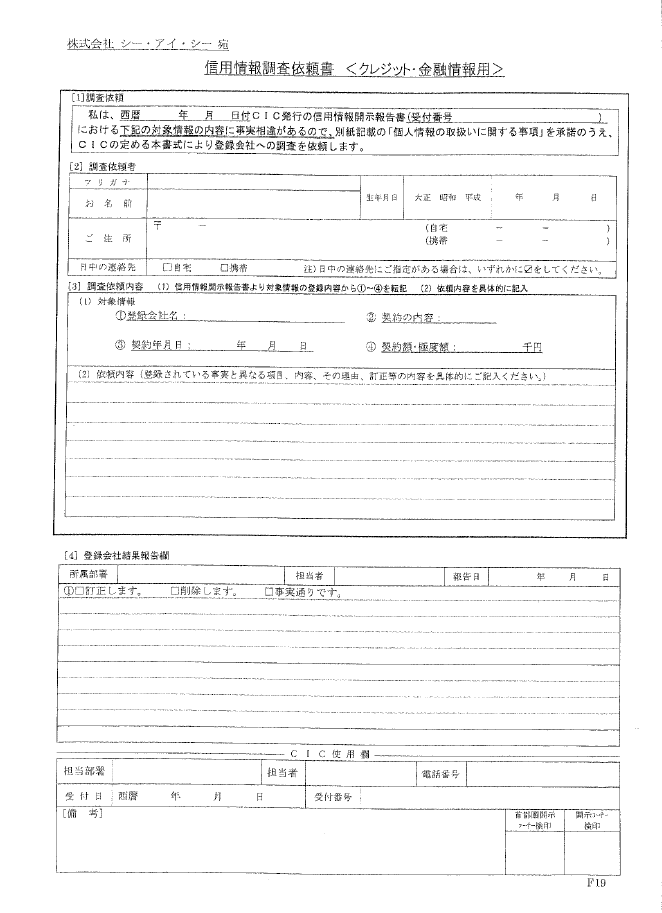 株式会社 シー・アイ・シー 宛
信用情報調査依頼書 <クレジット・金融情報用>
[1]調査依頼
私は、西暦 年 月 日付CIC発行の信用情報開示報告書(受付番号 )
における下記の対象情報の内容に事実相違があるので、別紙記載の「個人情報の取扱いに関する事項」を承諾のうえ、
CICの定める本書式により登録会社への調査を依頼します。
[2] 調査依頼者
フリガナ
お 名 前 生年月日 大正 昭和 平成 年 月 日
ご 住 所 〒 － (自宅 － － )
(携帯 － － )
日中の連絡先 □自宅 □携帯 注)日中の連絡先にご指定がある場合は、いずれかに☑をしてください。
[3] 調査依頼内容 (1) 信用情報開示報告書より対象情報の登録内容から①～④を転記 (2) 依頼内容を具体的に記入
(1) 対象情報
①登録会社名: ② 契約の内容:
③ 契約年月日: 年 月 日 ④ 契約額・極度額: 千円
(2) 依頼内容 (登録されている事実と異なる項目、内容、その理由、訂正等の内容を具体的にご記入ください。)
[4] 登録会社結果報告欄
所属部署 担当者 報告日 年 月 日
①□訂正します。 □削除します。 □事実通りです。
CIC使用欄
担当部署 担当者 電話番号
受 付 日 西暦 年 月 日 受付番号
[備 考] 首都圏開示 開示コーナー
コーナー検印 検印
F19